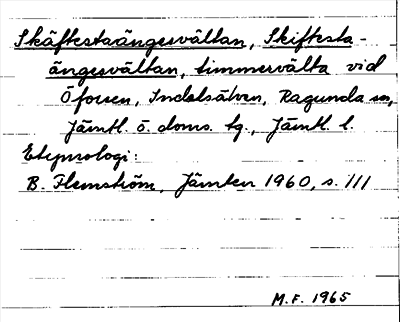 Skäftestaängesvältan, Skiftesta-
ängesvältan, timmervälta vid
Öforsen, Indalsälven, Ragunda sn,
Jämtl. ö. doms. tg., Jämtl. l.
Etymologi:
B. Flemström, Jämten 1960, s. 111
M.F. 1965